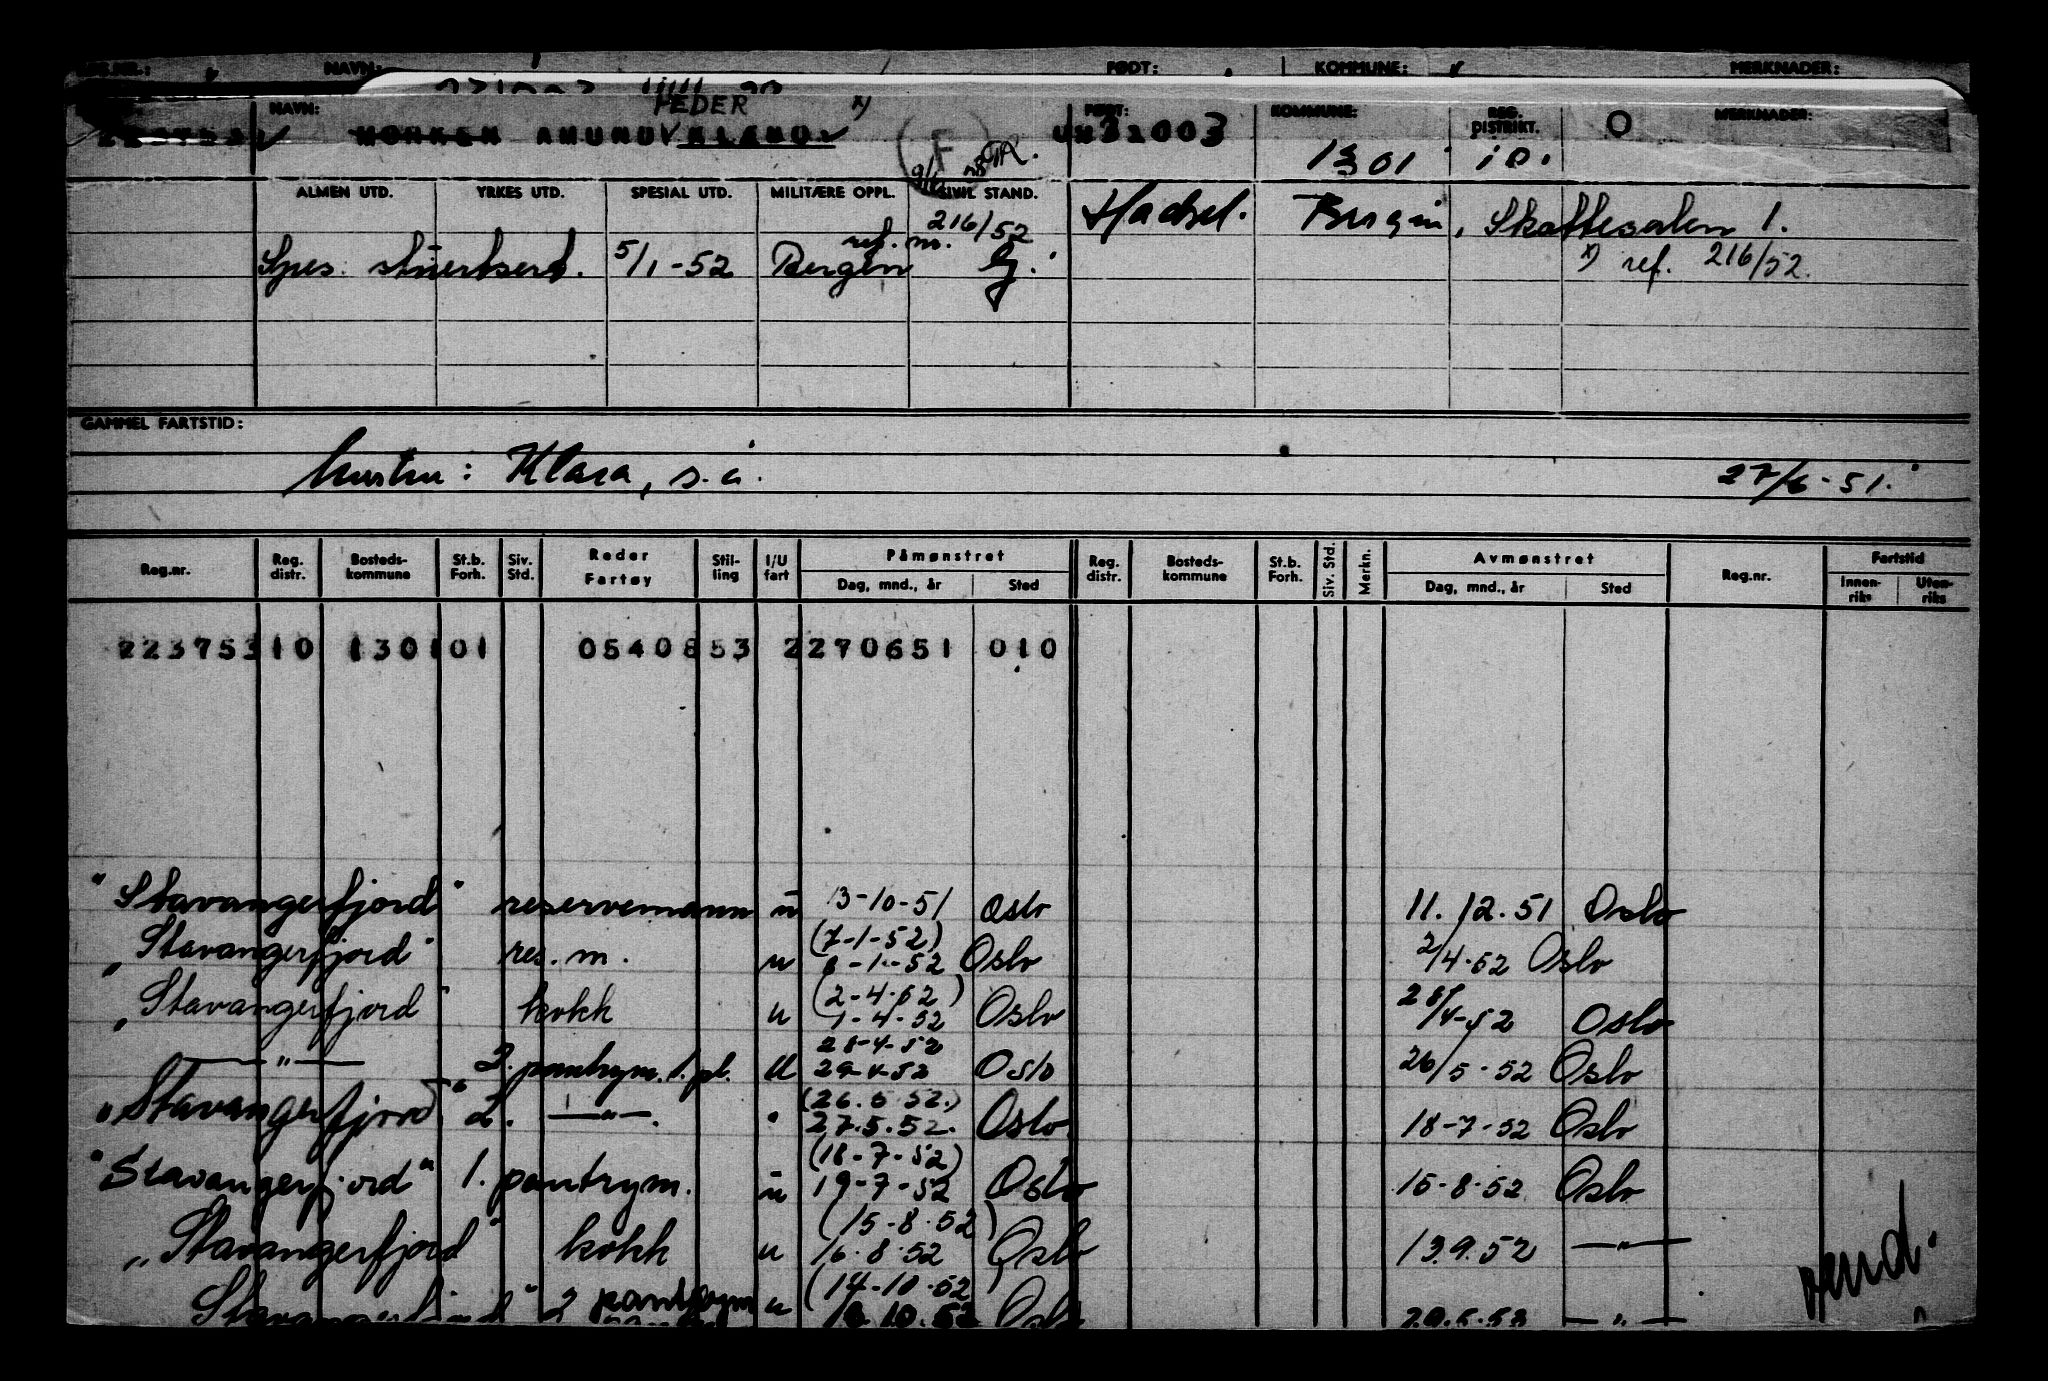 NAVN: FØDT: KOMMUNE: MERKNADER:
PEDER x)
NAVN: FØDT: KOMMUNE: REG. DISTRIKT. MERKNADER:
AMUND 1301 10. O
F
ALMEN UTD. YRKES UTD. SPESIAL UTD. MILITÆRE OPPL. SIVIL STAND. Hadsel. Bergen, Skottesalen 1.
ref. nr. 216/52
Spes. stuertsert. 5/1-52 Bergen G. x) ref. 216/52.
GAMMEL FARTSTID:
hustru: Klara, s.a. 27/6-51.
Reg.nr. Reg. distr. Bosteds-kommune St.b. Forh. Siv. Std. Reder Fartøy Stil-ling I/U fart Påmønstret Dag, mnd., år Sted Reg. distr. Bosteds-kommune St.b. Forh. Siv. Std. Merkn. Avmønstret Dag, mnd., år Sted Reg.nr. Fartstid Innen-riks Uten-riks
223753 10 1301 01 0540853 2 270651 010
"Stavangerfjord" reservemann u 13-10-51 Oslo 11.12.51 Oslo
(7-1-52)
"Stavangerfjord" res. m. u 8-1-52 Oslo 2/4-52 Oslo
(2-4-52)
"Stavangerfjord" kokk u 1-4-52 Oslo 28/4-52 Oslo
28-4-52
—"— 2. pantrym. 1. pl. u 29-4-52 Oslo 26/5-52 Oslo
(26.5.52.)
"Stavangerfjord" 2. —"—. " 27.5.52. Oslo 18-7-52 Oslo
(18-7-52)
"Stavangerfjord" 1. pantrym. u 19-7-52 Oslo 15-8-52 Oslo
(15-8-52)
"Stavangerfjord" kokk u 16.8.52 Oslo 13.9.52 —"—
vend.
(14-10-52)
Stavangerfjord" 2 pantrym u Oslo —"—